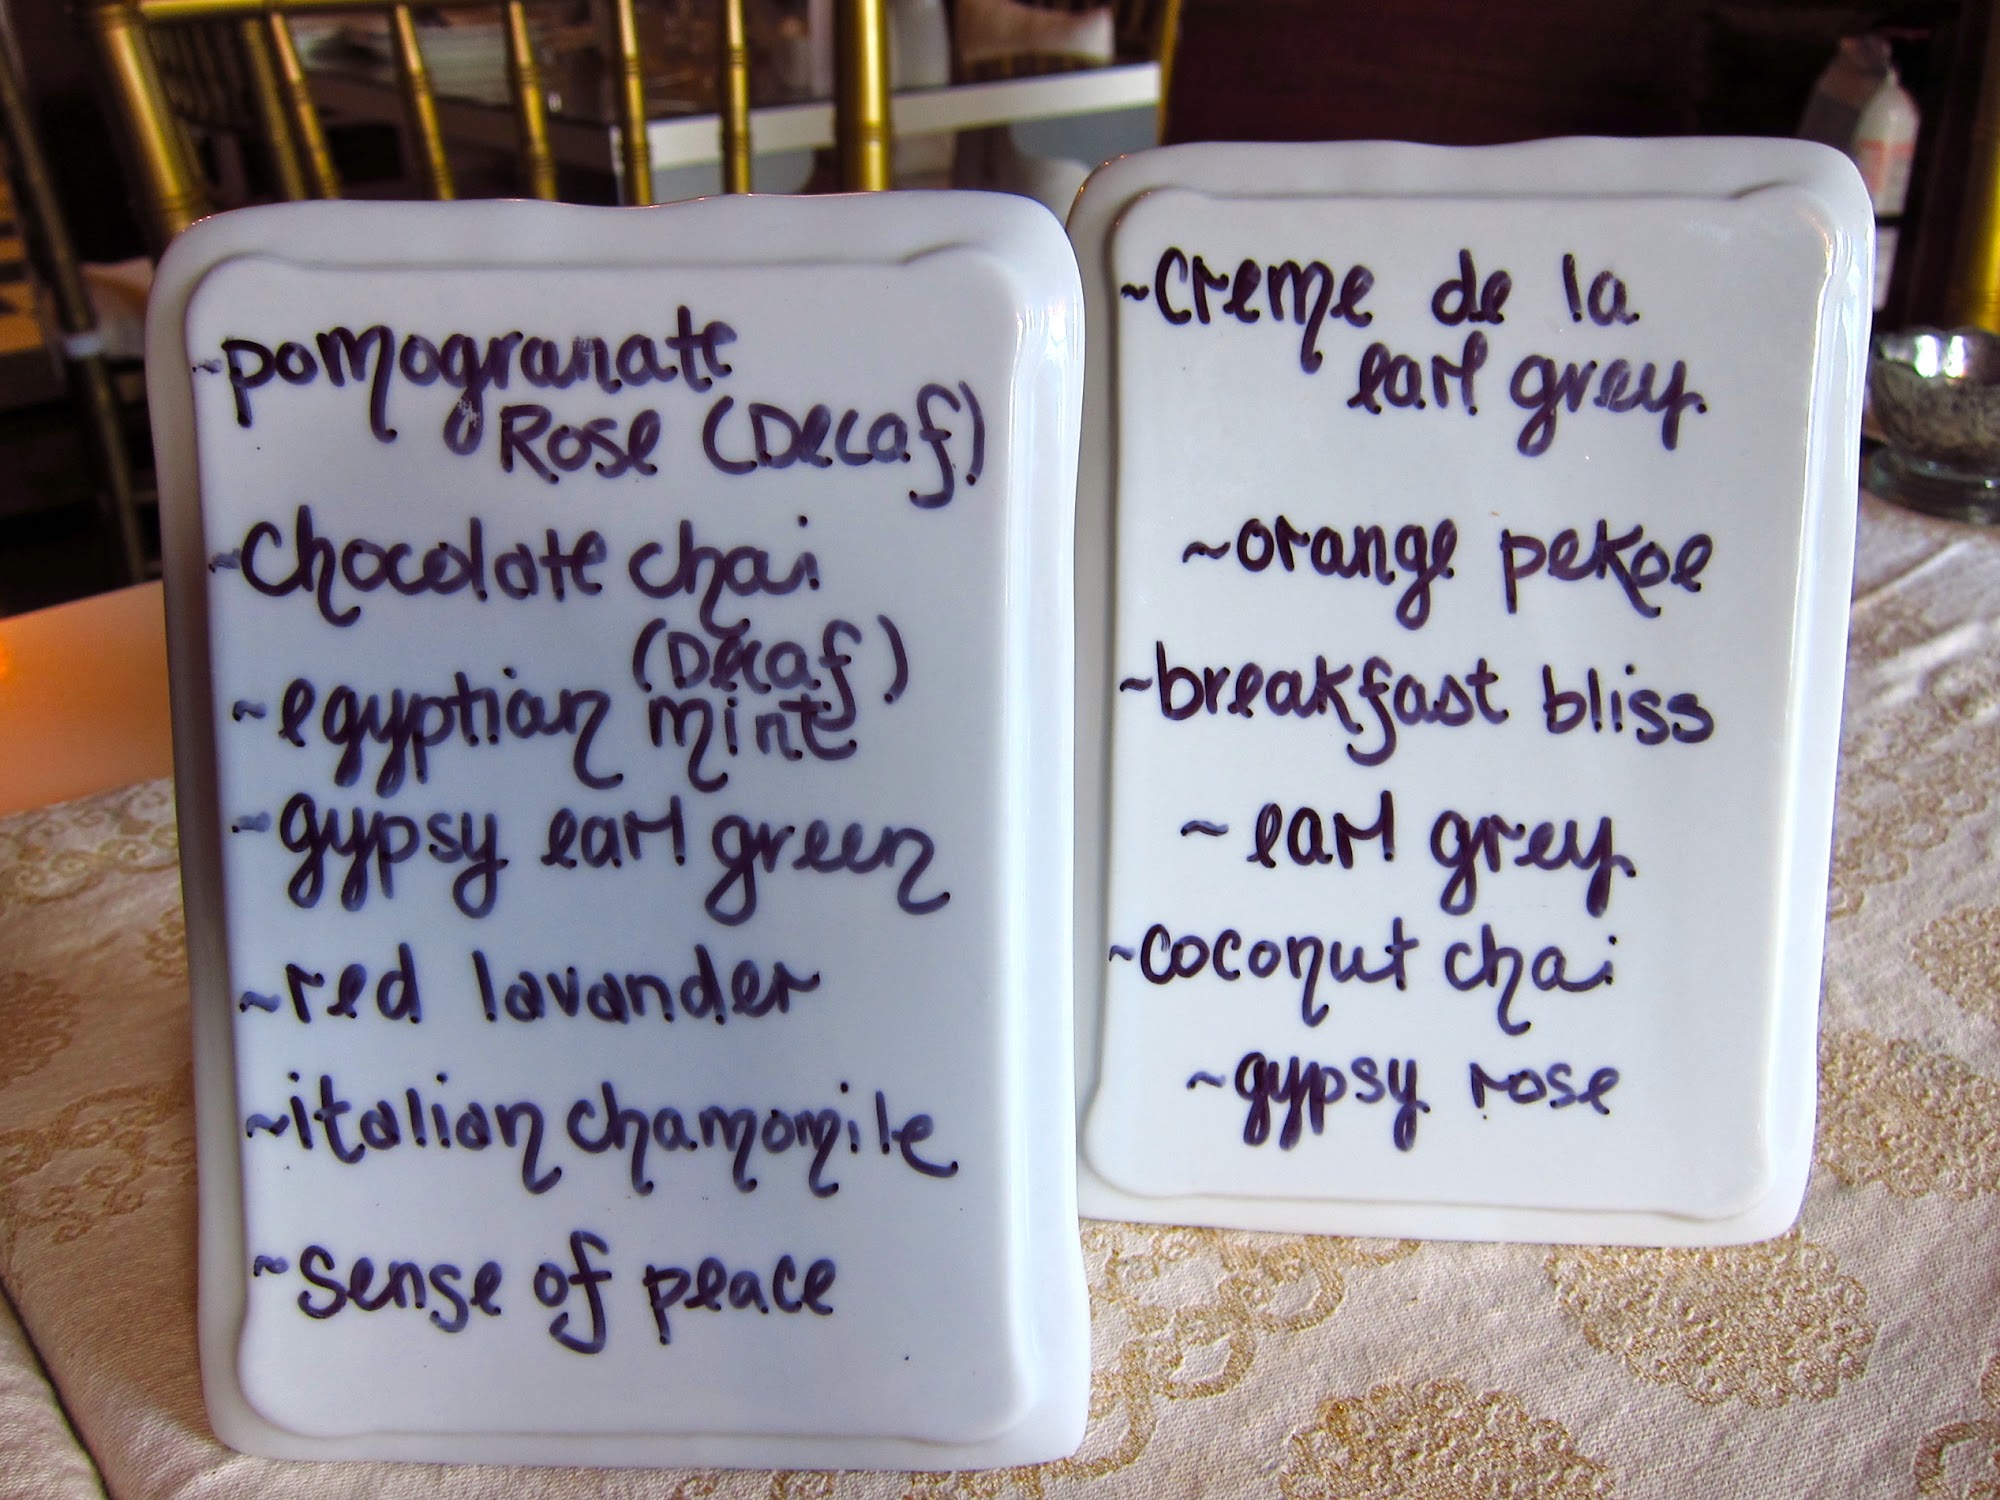 ~pomogranate
Rose (Decaf)
~chocolate chai
(Decaf)
~egyptian mint
~gypsy earl green
~red lavander
~italian chamomile
~sense of peace
~creme de la
earl grey
~orange pekoe
~breakfast bliss
~earl grey
~coconut chai
~gypsy rose